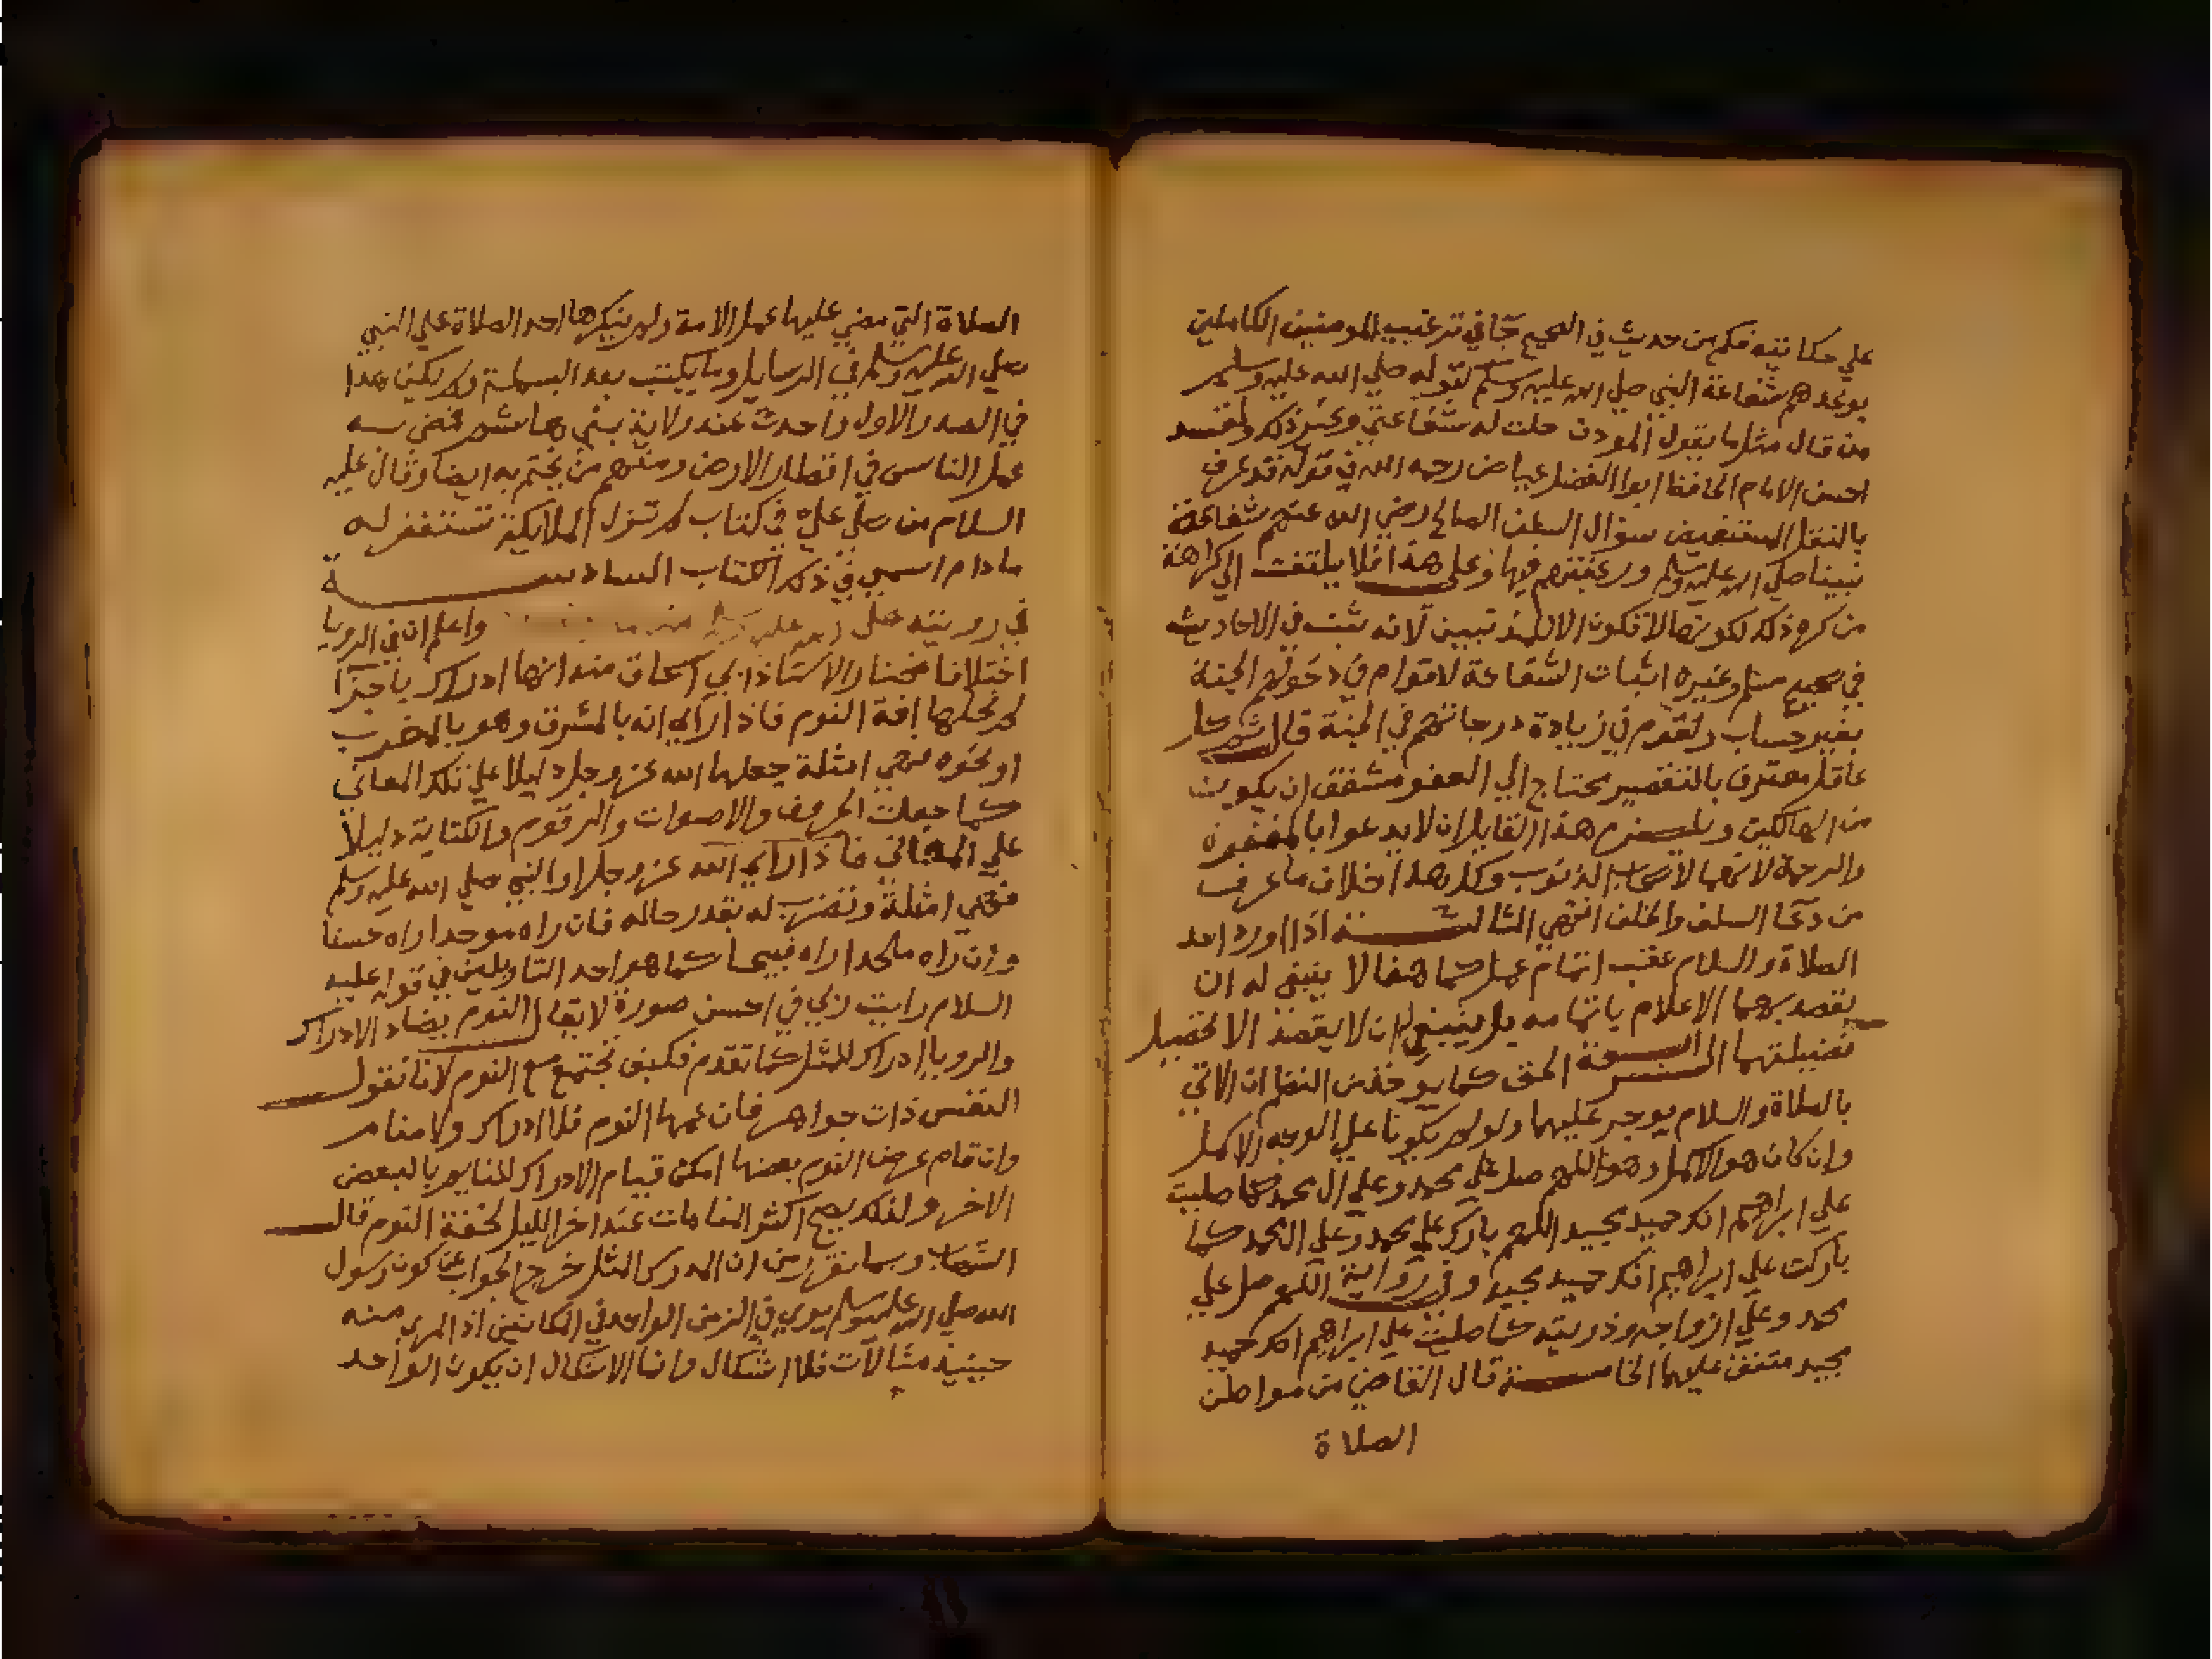 علي حكايته فكم من حديث في الصحيح جآ في ترغيب المومنين الكاملين
بوعدهم شفاعة النبي صلي الله عليه وسلم كقوله صلي الله عليه وسلم
من قال مثل ما يقول المودن حلت له شفاعتي وغير ذلك ولقد
احسن الامام الحافظ ابوا الفضل عياض رحمه الله في قوله قد عرف
بالنقل المستفيض سوال السلف الصالح رضي الله عنهم شفاعة
نبينا صلي الله عليه وسلم ورغبتهم فيها وعلي هذا فلا يلتفت الي كراهة
من كره ذلك لكونها لا تكون الا للمذنبين لانه ثبت في الاحاديث
في صحيح مسلم وغيره اثبات الشفاعة لاقوام في دخولهم الجنة
بغير حساب ولقوم في زيادة درجاتهم في الجنة قال ثم كل
عاقل معترف بالتقصير محتاج الي العفو مشفق ان يكون
من الهالكين ويلزم هذا القايل ان لا يدعوا بالمغفرة
والرحمة لانهما لاصحاب الذنوب وكل هذا خلاف ما عرف
من دعآ السلف والخلف انتهي الثالثة اذا اورد احد
الصلاة والسلام عقب اتمام عمل كما هنا لا ينبغي له ان
يقصد بهما الاعلام باتمامه بل ينبغي ان لا يقصد الا تحصيل
فضيلتهما الحق كما يوخذ من النظم ان الاتي
بالصلاة والسلام يوجر عليهما ولو لم يكونا علي الوجه الاكمل
وان كان هو الاكمل وهو اللهم صل علي محمد وعلي ال محمد كما صليت
علي ابراهيم انك حميد مجيد اللهم بارك علي محمد وعلي ال محمد كما
باركت علي ابراهيم انك حميد مجيد وفي رواية اللهم صل علي
محمد وعلي ازواجه وذريته كما صليت علي ابراهيم انك حميد
مجيد متفق عليهما الخامسة قال القاضي من مواطن
الصلاة
الصلاة التي مضي عليها عمل الامة ولم ينكرها احد الصلاة علي النبي
صلي الله عليه وسلم في الرسايل وما يكتب بعد البسملة ولم يكن هذا
في الصدر الاول واحدث عند ولاية بني هاشم فمضي به
عمل الناس في اقطار الارض ومنهم من يختم به ايضا وقال عليه
السلام من صلي علي في كتاب لم تزل الملايكة تستغفر له
ما دام اسمي في ذلك الكتاب السادسة
في رويته صلي الله عليه وسلم واعلم ان في الرويا
اختلافا فمختار الاستاذ ابي اسحاق انها ادراك باجزآ
لم تحلها افة النوم فاذا راي انه بالمشرق وهو بالمغرب
او نحوه فهي امثلة جعلها الله عز وجل دليلا علي تلك المعاني
كما جعلت الحروف والاصوات والرقوم والكتابة دليلا
علي المعاني فاذا راي الله عز وجل او النبي صلي الله عليه وسلم
فهي امثلة وتضرب له بقدر حاله فان راه موحدا راه حسنا
وان راه ملحدا راه قبيحا كما هو احد التاويلين في قوله عليه
السلام رايت ربي في احسن صورة لا يقال النوم يضاد الادراك
والرويا ادراك للمثل كما تقدم فكيف تجتمع مع النوم لانا نقول
النفس ذات جواهر فان عمها النوم فلا ادراك ولا منام
وان قام عرض النوم ببعضها امكن قيام الادراك للنايم بالبعض
الاخر ولذلك يصح اكثر المنامات عند اخر الليل لخفة النوم قال
الشهاب وبما تقرر من ان المدرك المثل خرج الجواب عن كون رسول
الله صلي الله عليه وسلم يري في الزمن الواحد في المكانين اذ المري منه
حينيذ مثالات فلا اشكال وانما الاشكال ان يكون الواحد